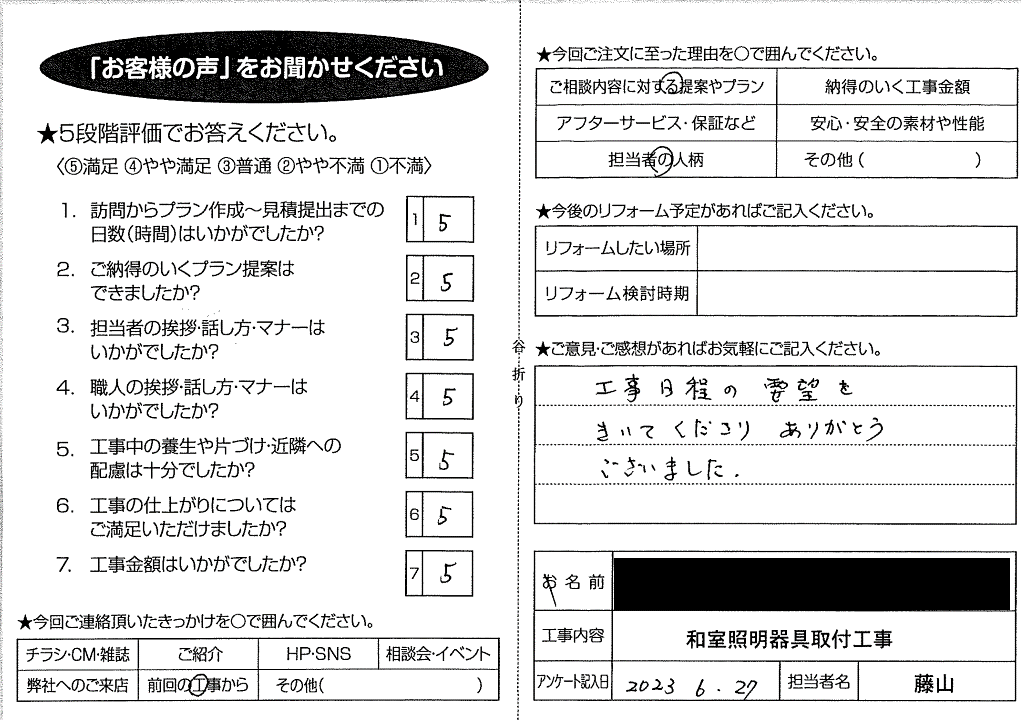 「お客様の声」をお聞かせください
★5段階評価でお答えください。
〈⑤満足 ④やや満足 ③普通 ②やや不満 ①不満〉
1. 訪問からプラン作成〜見積提出までの
日数(時間)はいかがでしたか?
1 5
2. ご納得のいくプラン提案は
できましたか?
2 5
3. 担当者の挨拶・話し方・マナーは
いかがでしたか?
3 5
4. 職人の挨拶・話し方・マナーは
いかがでしたか?
4 5
5. 工事中の養生や片づけ・近隣への
配慮は十分でしたか?
5 5
6. 工事の仕上がりについては
ご満足いただけましたか?
6 5
7. 工事金額はいかがでしたか?
7 5
★今回ご連絡頂いたきっかけを〇で囲んでください。
チラシ・CM・雑誌 ご紹介 HP・SNS 相談会・イベント
弊社へのご来店 前回の工事から その他( )
谷折り
★今回ご注文に至った理由を〇で囲んでください。
ご相談内容に対する提案やプラン 納得のいく工事金額
アフターサービス・保証など 安心・安全の素材や性能
担当者の人柄 その他( )
★今後のリフォーム予定があればご記入ください。
リフォームしたい場所
リフォーム検討時期
★ご意見・ご感想があればお気軽にご記入ください。
工事日程の要望を
きいてくださり ありがとう
ございました.
お名前
工事内容 和室照明器具取付工事
アンケート記入日 2023 6.27 担当者名 藤山